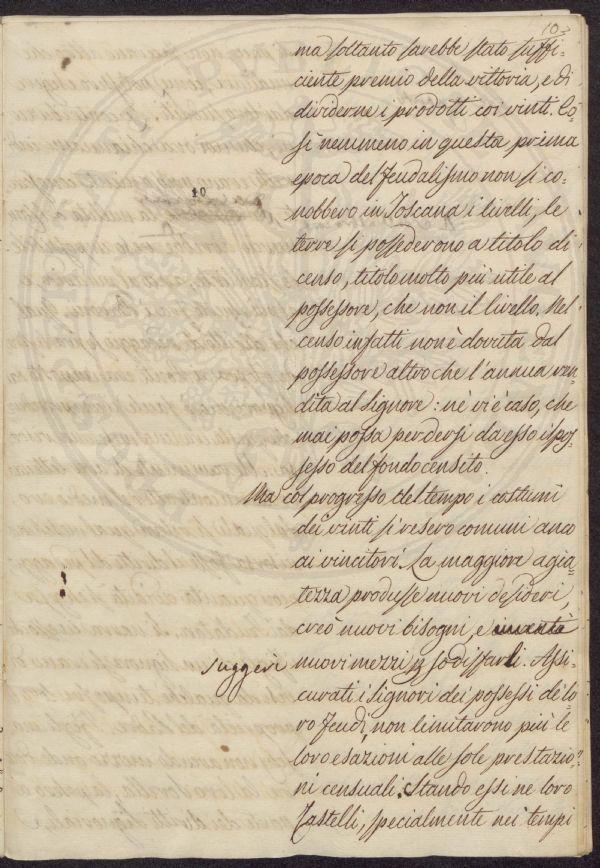 10
ma soltanto sarebbe stato suffi-
ciente premio della vittoria, e di
dividerne i prodotti coi vinti. Co
sì nemmeno in questa prima
epoca del feudalismo non si co-
10
nobbero in Toscana i livelli, le
terre si possederono a titolo di
censo, titolo molto più utile al
possessore, che non il livello. Nel
censo infatti non è dovuta dal
possessore altro che l'annua ren-
dita al signore: nè vi è caso, che
mai possa perdersi da esso il pos-
sesso del fondo censito.
Ma col progresso del tempo i costumi
dei vinti si resero comuni anco
ai vincitori. La maggiore agia-
tezza produsse nuovi desideri,
creò nuovi bisogni, e inventò
suggerì nuovi mezzi p sodisfarli. Assi-
curati i signori dei possessi de' lo-
ro feudi, non limitarono più le
loro esazioni alle sole prestazio-
ni censuali. Stando essi ne loro
Castelli, specialmente nei tempi